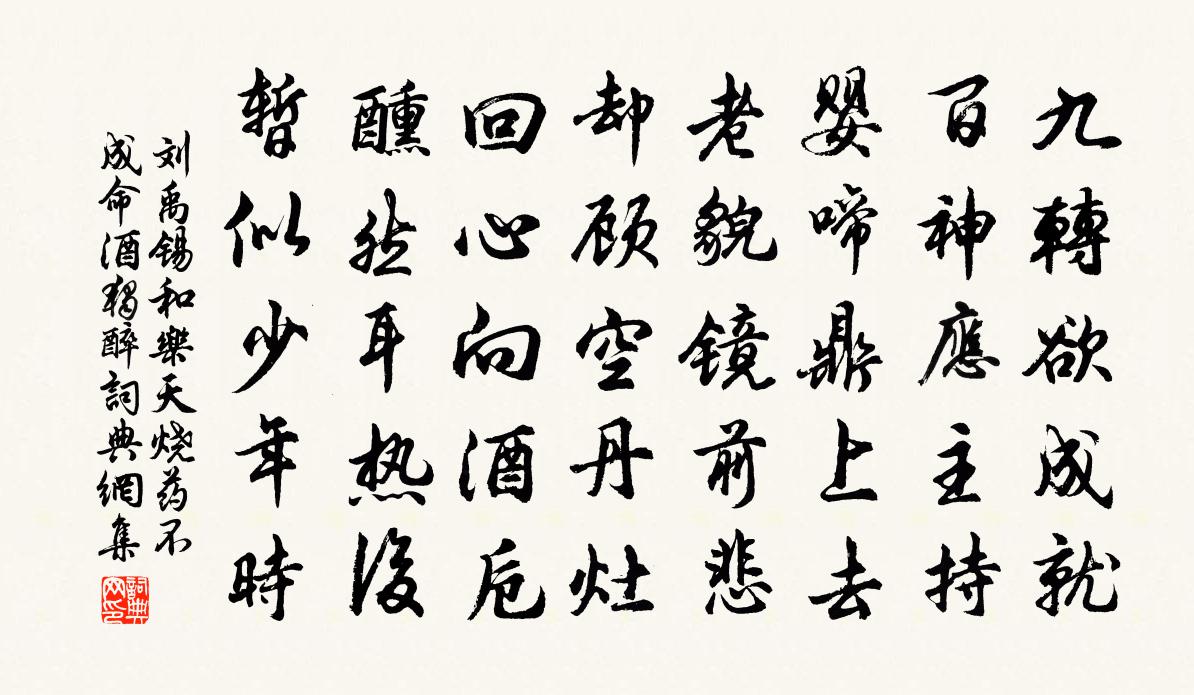 九轉欲成就
百神應主持
嬰啼鼎上去
老貌鏡前悲
却顾空丹灶
回心向酒卮
醺然耳热後
暫似少年時
刘禹锡和樂天烧药不
成命酒獨醉詞典網集
詞典
网印